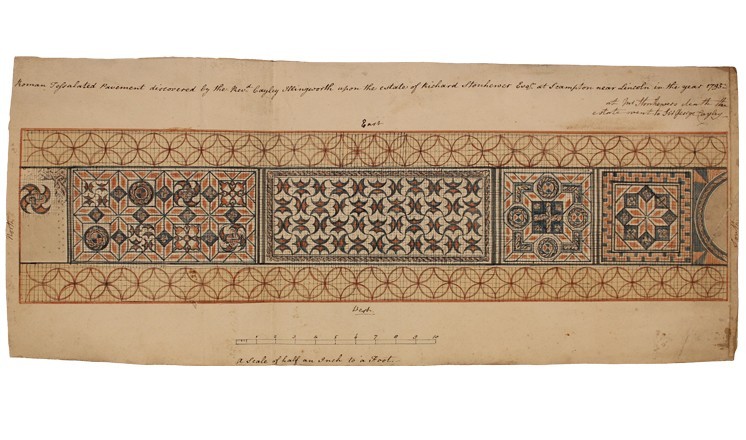 Roman Tessalated Pavement discovered by the Revd. Cayley Illingworth upon the estate of Richard Stonhewer Esqr. at Scampton near Lincoln in the year 1795
at Mr. Stonhewers death the
estate went to Sir George Cayley
East
North
South
West.
1 2 3 4 5 6 7 8 9 10
A Scale of half an Inch to a Foot.